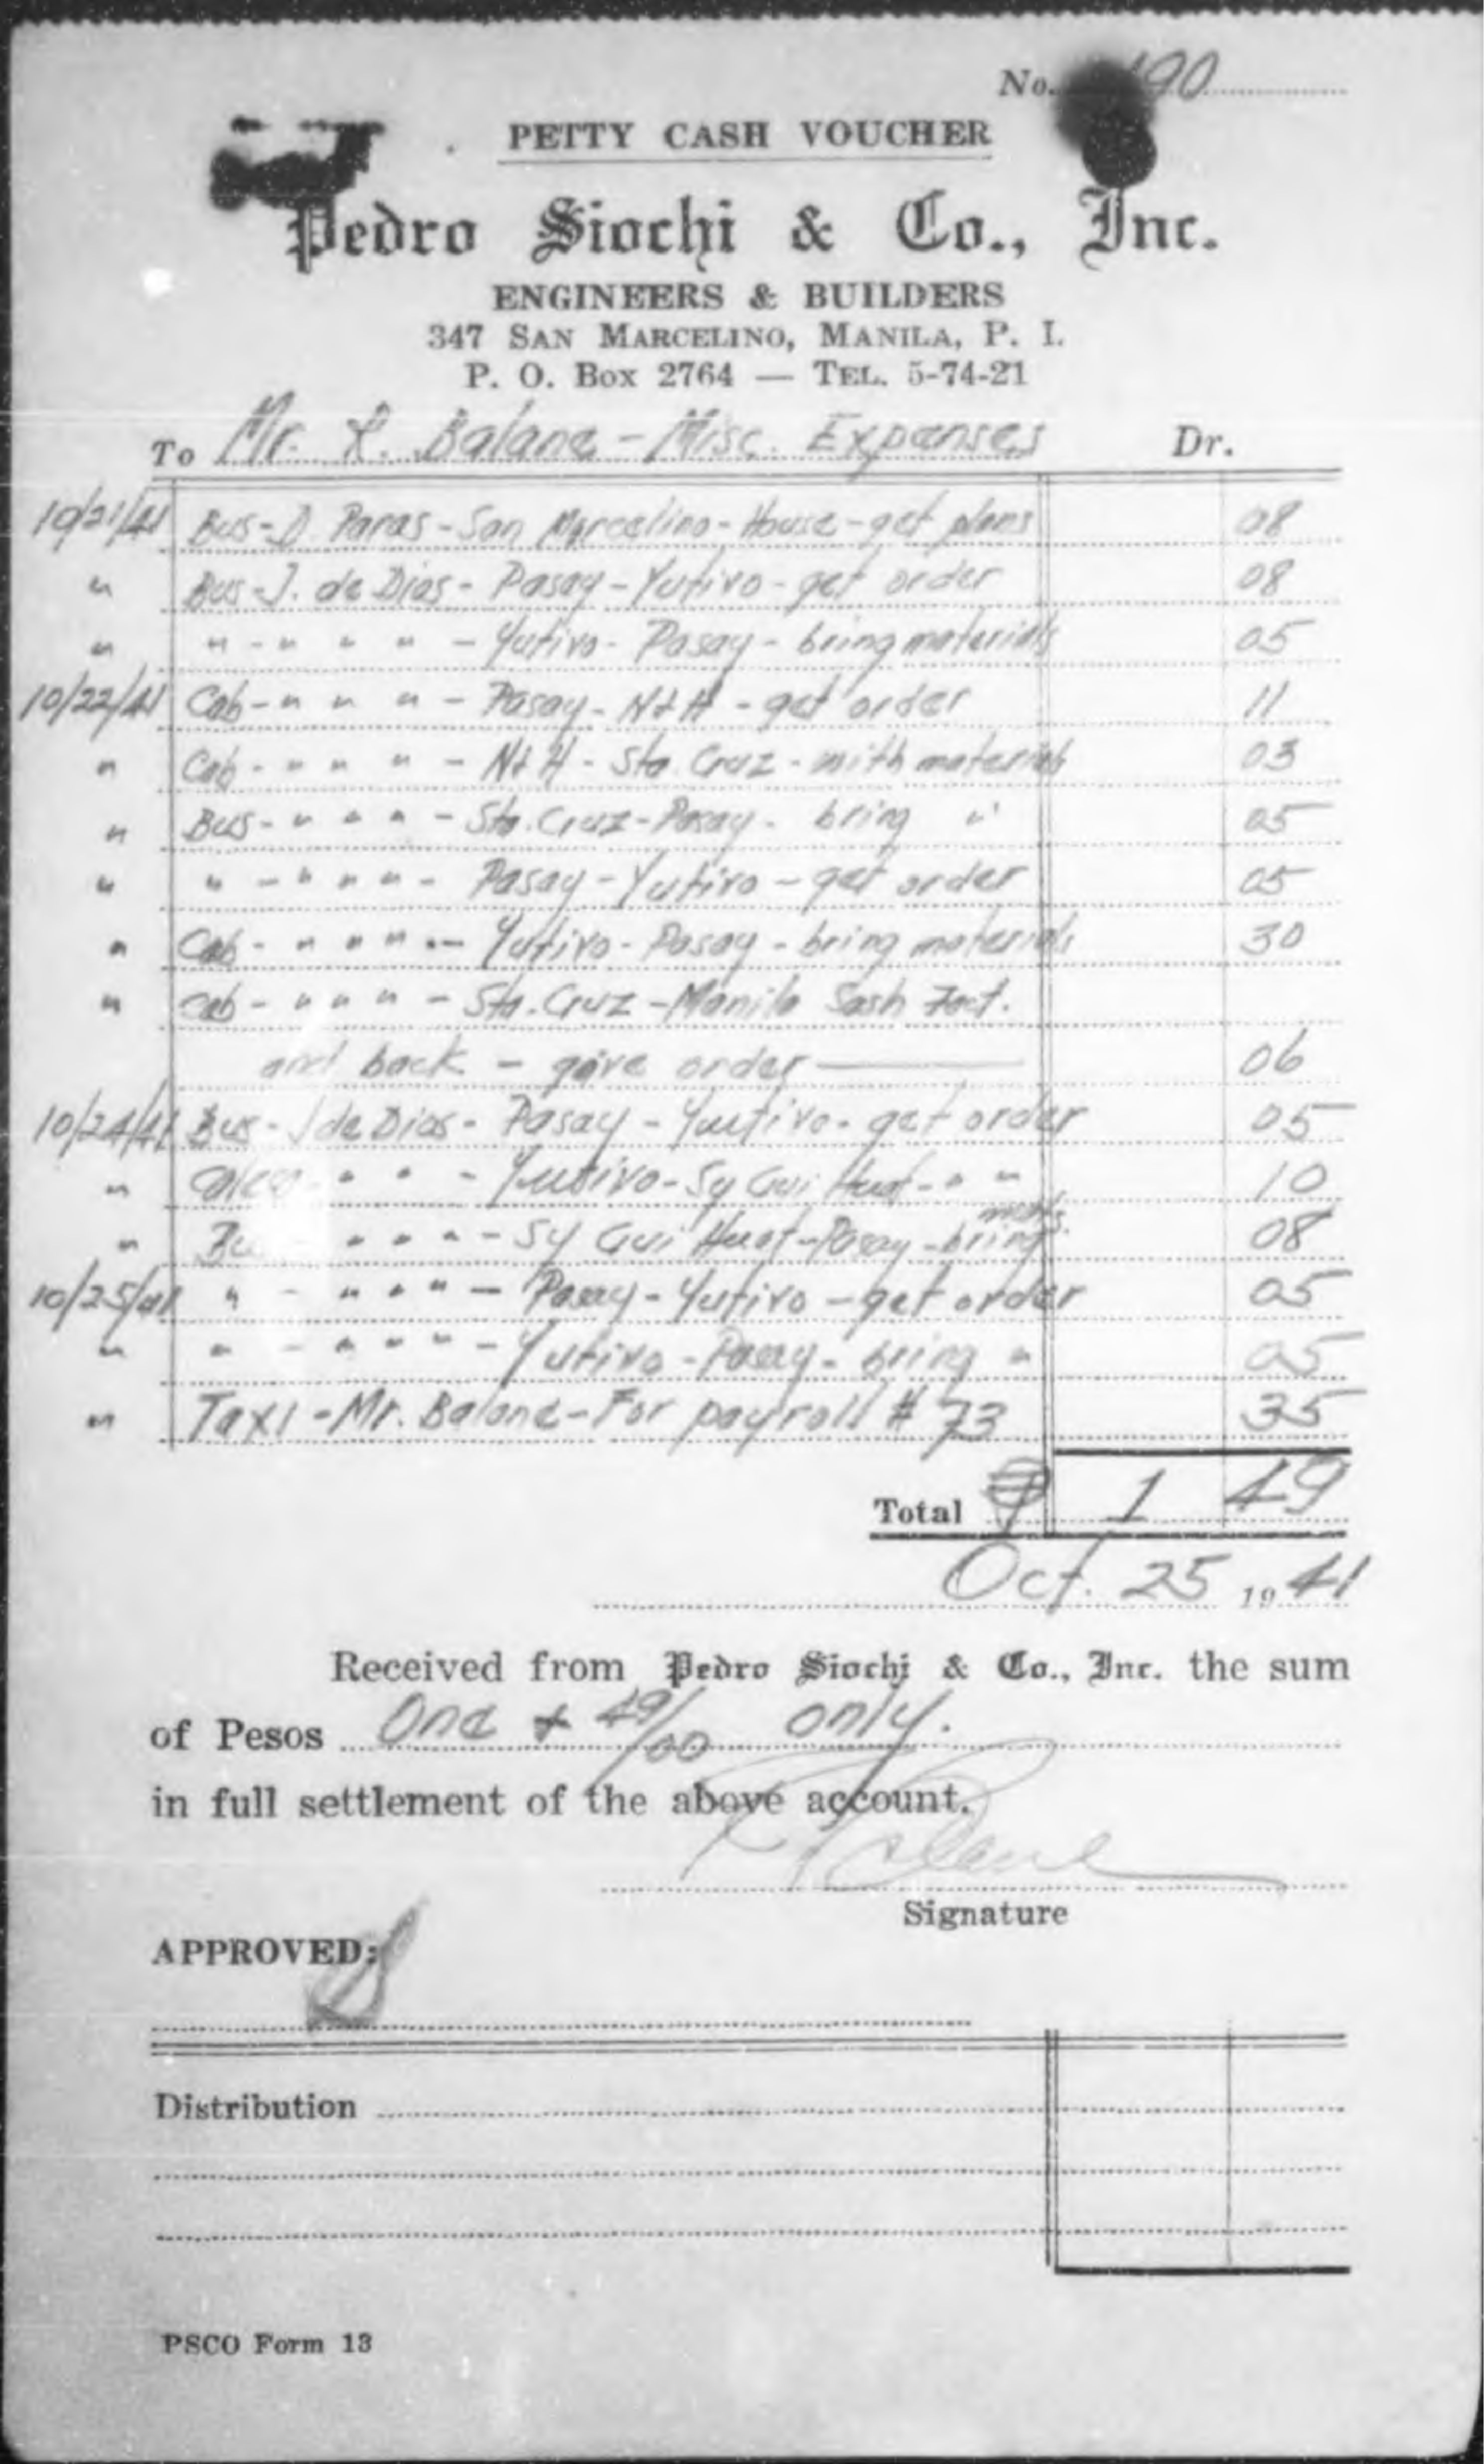 No. 190
PETTY CASH VOUCHER
Pedro Siochi & Co., Inc.
ENGINEERS & BUILDERS
347 SAN MARCELINO, MANILA, P. I.
P. O. Box 2764 — TEL. 5-74-21
To Mr. L. Balane - Misc. Expenses Dr.
10/21/41 Bus - D. Paras - San Marcelino - House - get plans 08
" Bus - J. de Dios - Pasay - Yutivo - get order 08
" " - " " " - Yutivo - Pasay - bring materials 05
10/22/41 Cab - " " " - Pasay - N&H - get order 11
" Cab - " " " - N&H - Sta. Cruz - with materials 03
" Bus - " " " - Sta. Cruz - Pasay - bring " 05
" " - " " " " - Pasay - Yutivo - get order 05
" Cab - " " " - Yutivo - Pasay - bring materials 30
" Cab - " " " - Sta. Cruz - Manila Sash Fact.
and back - give order 06
10/24/41 Bus - J de Dios - Pasay - Yutivo - get order 05
" " " - Yutivo - Sy Gui Huat - " " 10
" " " " - Sy Gui Huat - Pasay - bring mats. 08
10/25/41 " - " " " - Pasay - Yutivo - get order 05
" " - " " " - Yutivo - Pasay - bring " 05
" Taxi - Mr. Balane - For payroll # 73 35
Total ₱ 1 49
Oct. 25 1941
Received from Pedro Siochi & Co., Inc. the sum
of Pesos One + 49/00 only.
in full settlement of the above account.
Signature
APPROVED:
Distribution
PSCO Form 13